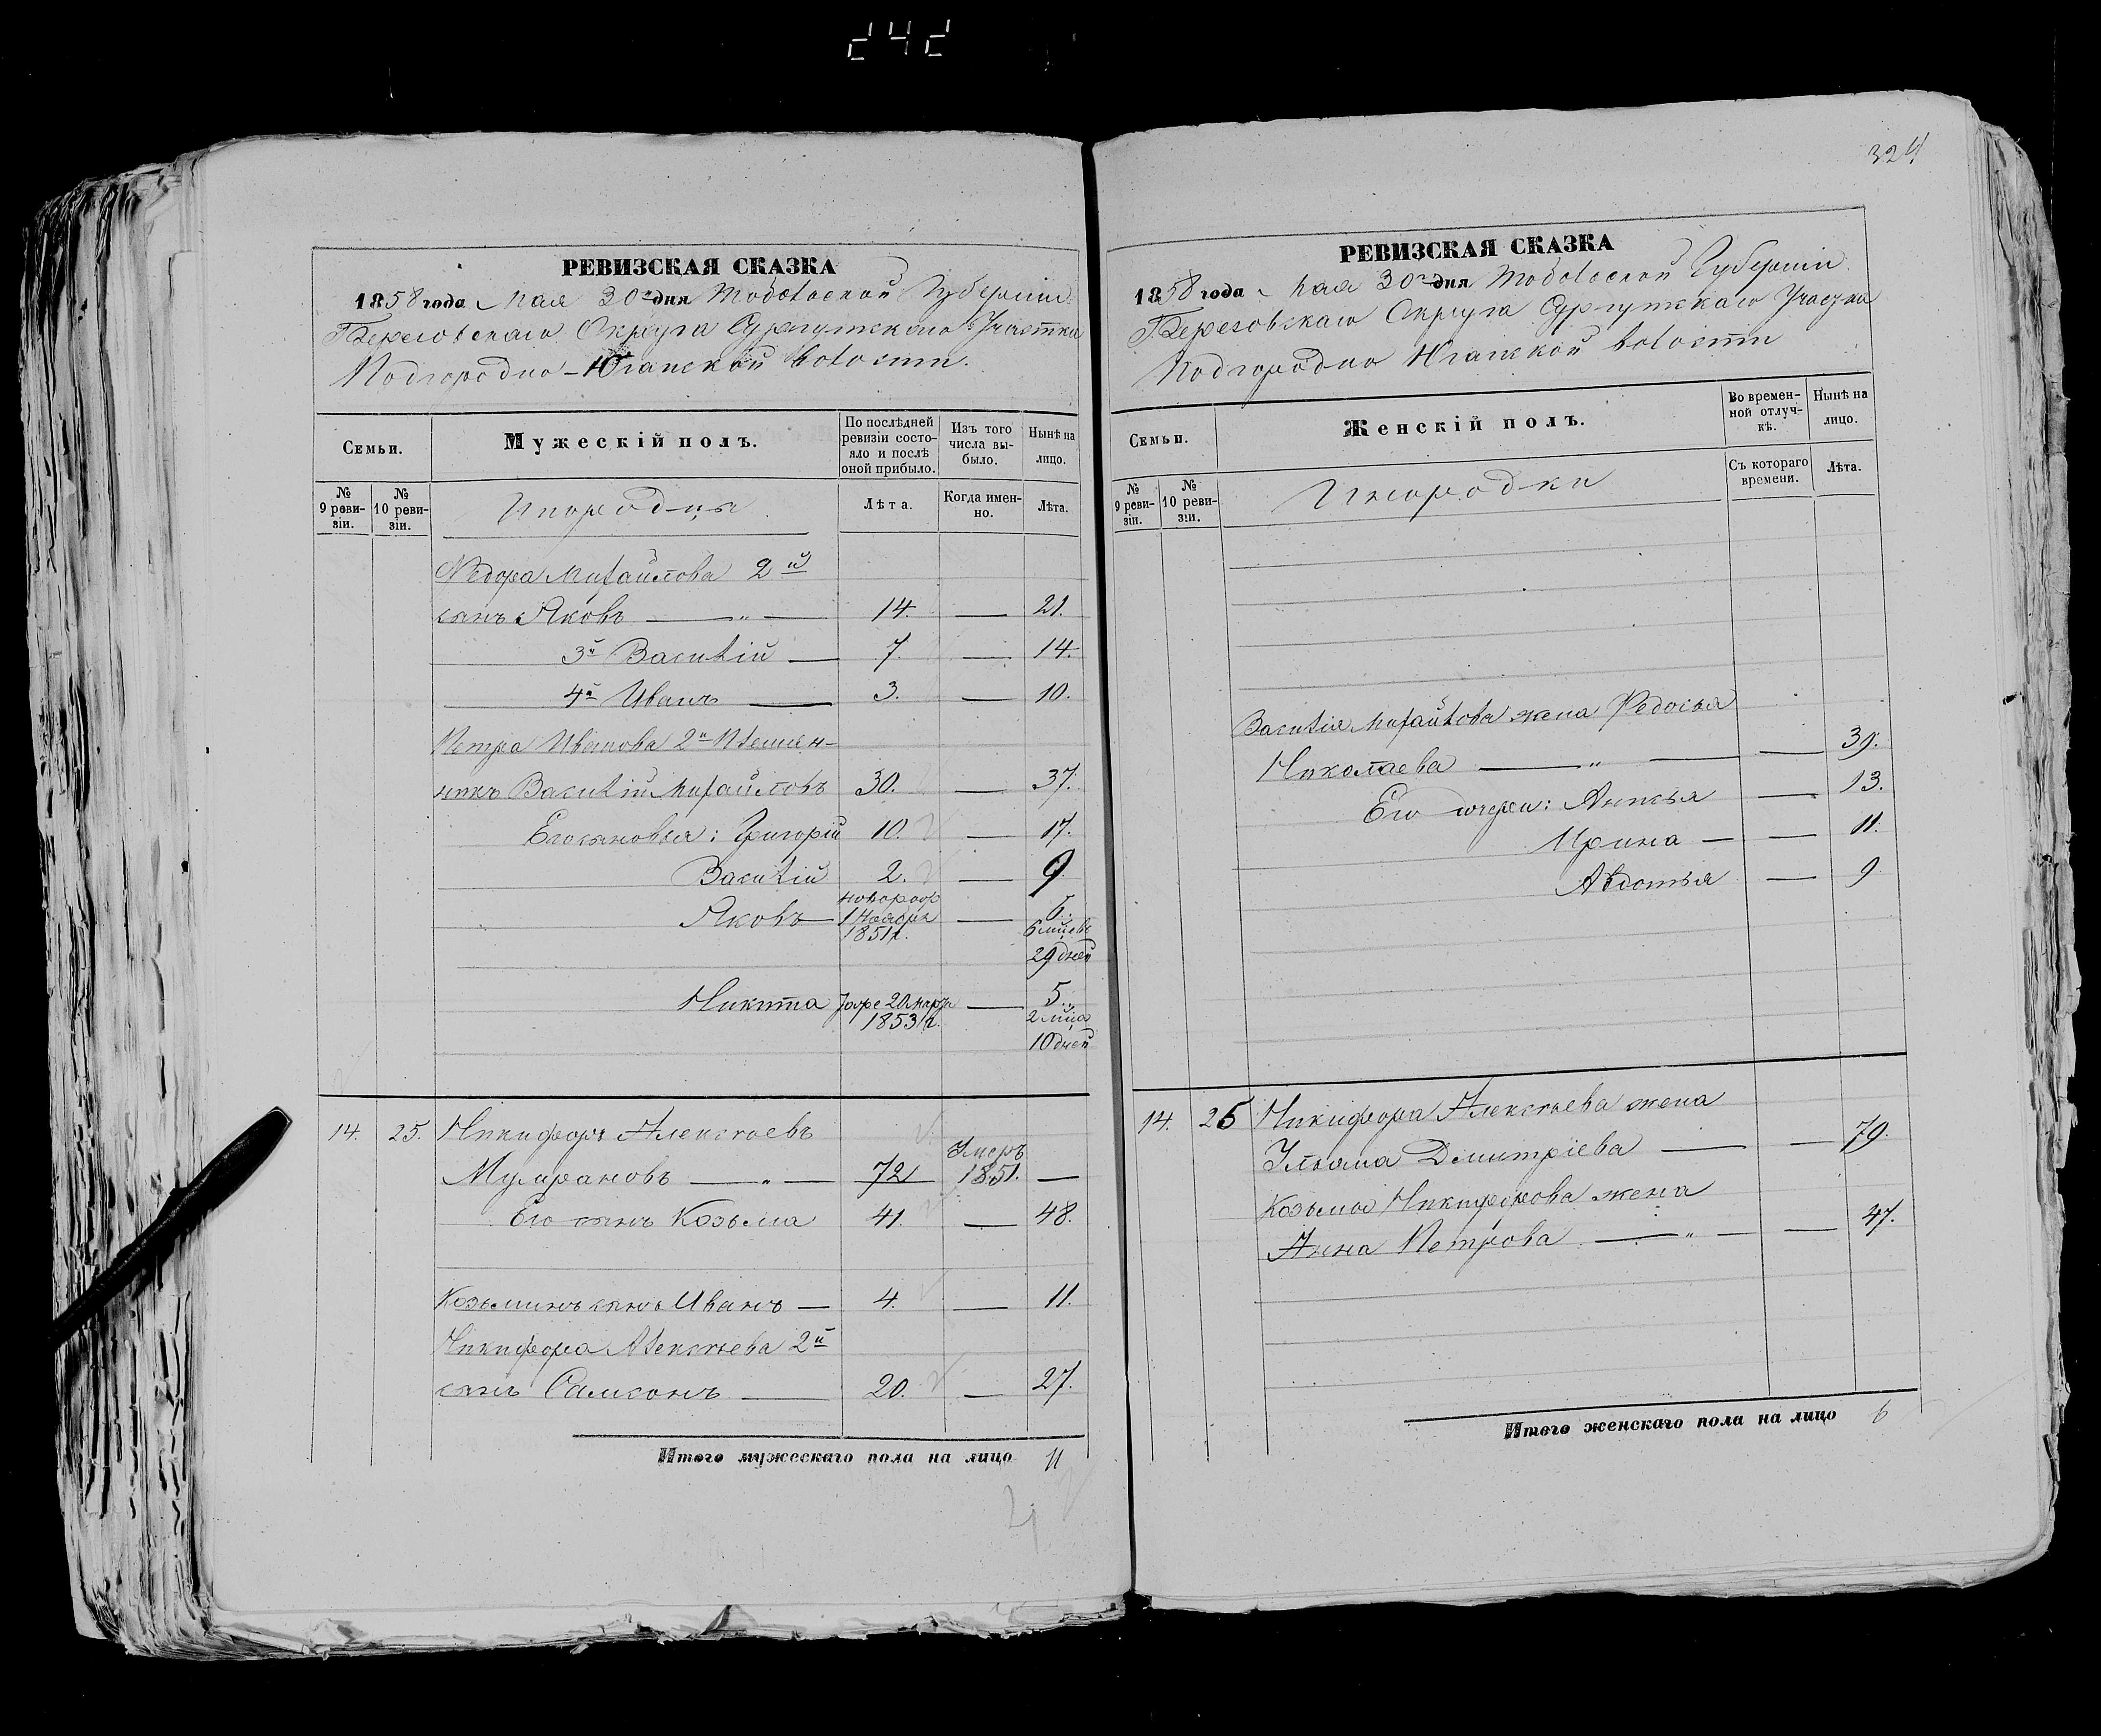 242
РЕВИЗСКАЯ СКАЗКА
1858 года Мая 30го дня Тобольской Губернии
Березовскаго Округа Сургутскаго Участка
Подгородно-Юганской волости.
Семьи.
Мужескій полъ.
По послѣдней ревизіи состояло и послѣ оной прибыло.
Изъ того числа выбыло.
Нынѣ на лицо.
№ 9 ревизіи.
№ 10 ревизіи.
Инородцы
Лѣта.
Когда именно.
Лѣта.
Ѳедора Михайлова 2й
сынъ Яковъ — „ — 14. — 21.
3й Василій — 7. — 14.
4й Иванъ — 3. — 10.
Петра Иванова 2й племян-
никъ Василій Михайловъ 30. — 37.
Его сыновья: Григорій 10. — 17.
Василій 2. — 9
Яковъ — 1 Ноября 1851г. — 6 мцевъ 29 дней
Никита 20 марта 1853г. — 5. 2 мца 10 дней
14. 25. Никифоръ Алексѣевъ
— „ — 72 Умеръ 1851. —
Его сынъ Козьма 41. — 48.
Козьминъ сынъ Иванъ — 4. — 11.
Никифора Алексѣева 2й
сынъ Самсонъ — 20. — 27.
Итого мужескаго пола на лицо 11
324
РЕВИЗСКАЯ СКАЗКА
1858 года Мая 30го дня Тобольской Губерніи
Березовскаго Округа Сургутскаго Участка
Подгородно Юганской волости
Семьи.
Женскій полъ.
Во временной отлучкѣ.
Нынѣ на лицо.
№ 9 ревизіи.
№ 10 ревизіи.
Инородки
Съ котораго времени.
Лѣта.
Василія Михайлова жена Федосья
Николаева — „ — — 39.
Его дочери: Анисья — 13.
Ирина — — 11.
Авдотья — 9
14. 25 Никифора Алексѣева жена
Ульяна Дмитріева — — 79.
Козьмы Никифорова жена
Анна Петрова — „ — — 47.
Итого женскаго пола на лицо 6